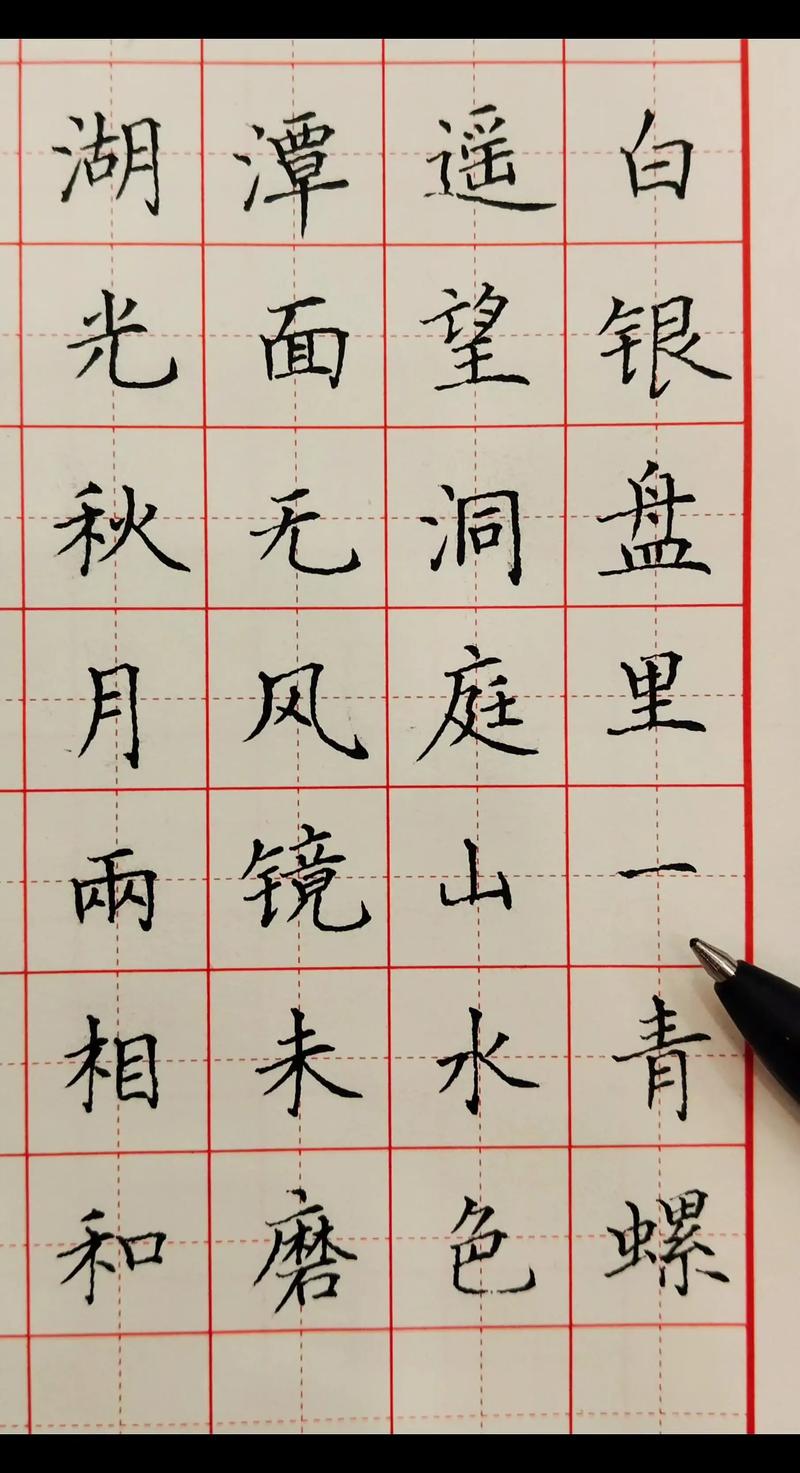 湖光秋月兩相和
潭面无风镜未磨
遥望洞庭山水色
白银盘里一青螺